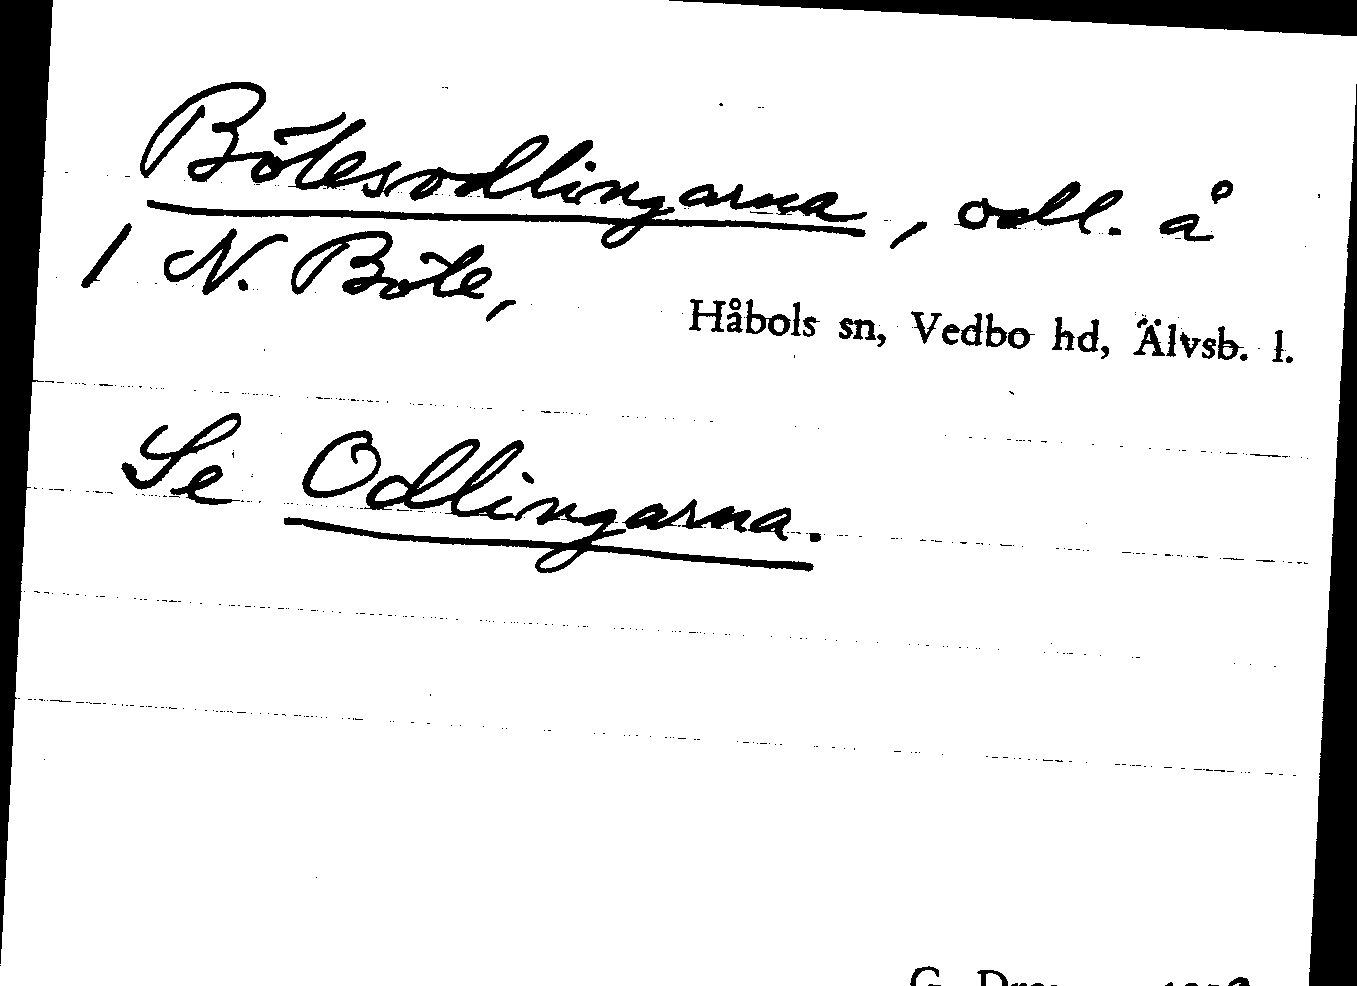 Bötesodlingarna, odl. å
1 N. Böte,
Håbols sn, Vedbo hd, Älvsb. l.
Se Odlingarna.
G.